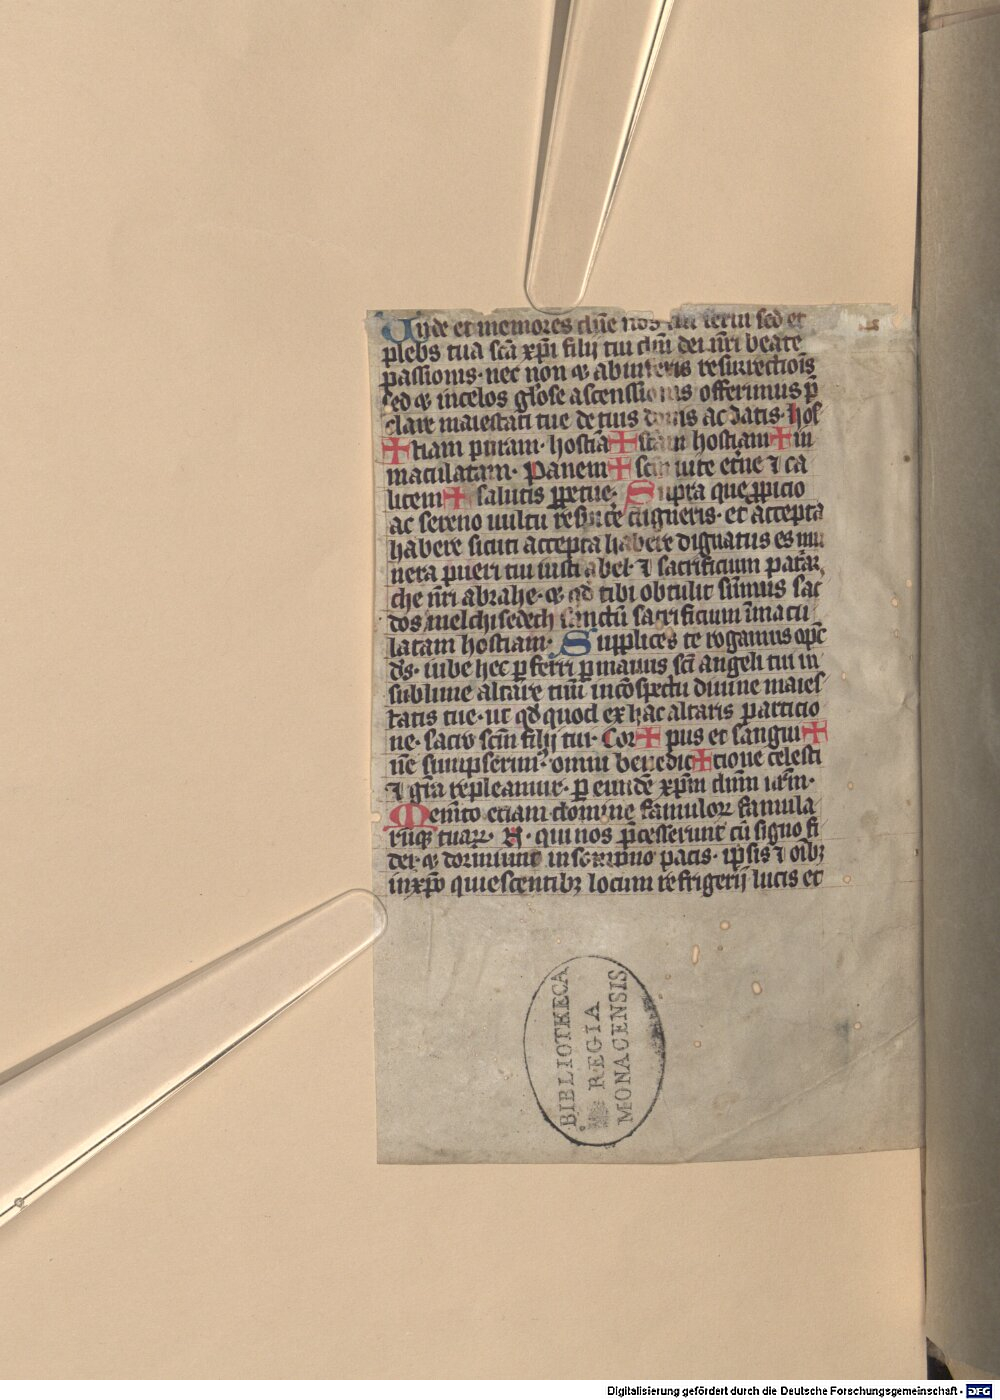 Unde et memores dn̄e nos tui serui sed et
plebs tua sc̄a xp̄i filij tui dn̄i dei nr̄i beate
passionis· nec non ⁊ ab inferis resurrectiōis
sed ⁊ in celos gl̄ose ascensionis offerimus p̄
clare maiestati tue de tuis donis ac datis· hos
✠ tiam puram· hostiā ✠ sc̄am hostiam ✠ in
maculatam· Panem ✠ sc̄m uite et̄ne ⁊ ca
licem ✠ salutis ꝑpetue· Supra que ꝓpicio
ac sereno uultu respicēe digneris· et accepta
habere sicuti accepta habere dignatus es mu
nera pueri tui iusti abel· ⁊ sacrificium patar
che nr̄i abrahe· ⁊ qd̄ tibi obtulit sūmus sac
dos melchisedech sanctū sacrificium īmacu
latam hostiam· Supplices te rogamus op̄c
ds̄· iube hec ꝑferri ꝑ manus sc̄i angeli tui in
sublime altare tuū in cōspectu diuine maies
tatis tue· ut qd̄ quod ex hac altaris particio
ne· sacro sc̄m filij tui· Cor ✠ pus et sangui ✠
nē sumpserim̄· omni benedic ✠ tione celesti
⁊ gr̄a repleamur· ꝑ eundē xp̄m dn̄m nr̄m·
Memēto etiam domine famuloꝝ famula
rūqꝫ tuaꝝ· N· qui nos p̄cesserunt cū signo fi
dei· ⁊ dormiunt in sompno pacis· ip̄sis ⁊ oībꝫ
in xp̄o quiescentibꝫ locum refrigerij lucis et
BIBLIOTHECA
REGIA
MONACENSIS
Digitalisierung gefördert durch die Deutsche Forschungsgemeinschaft - DFG